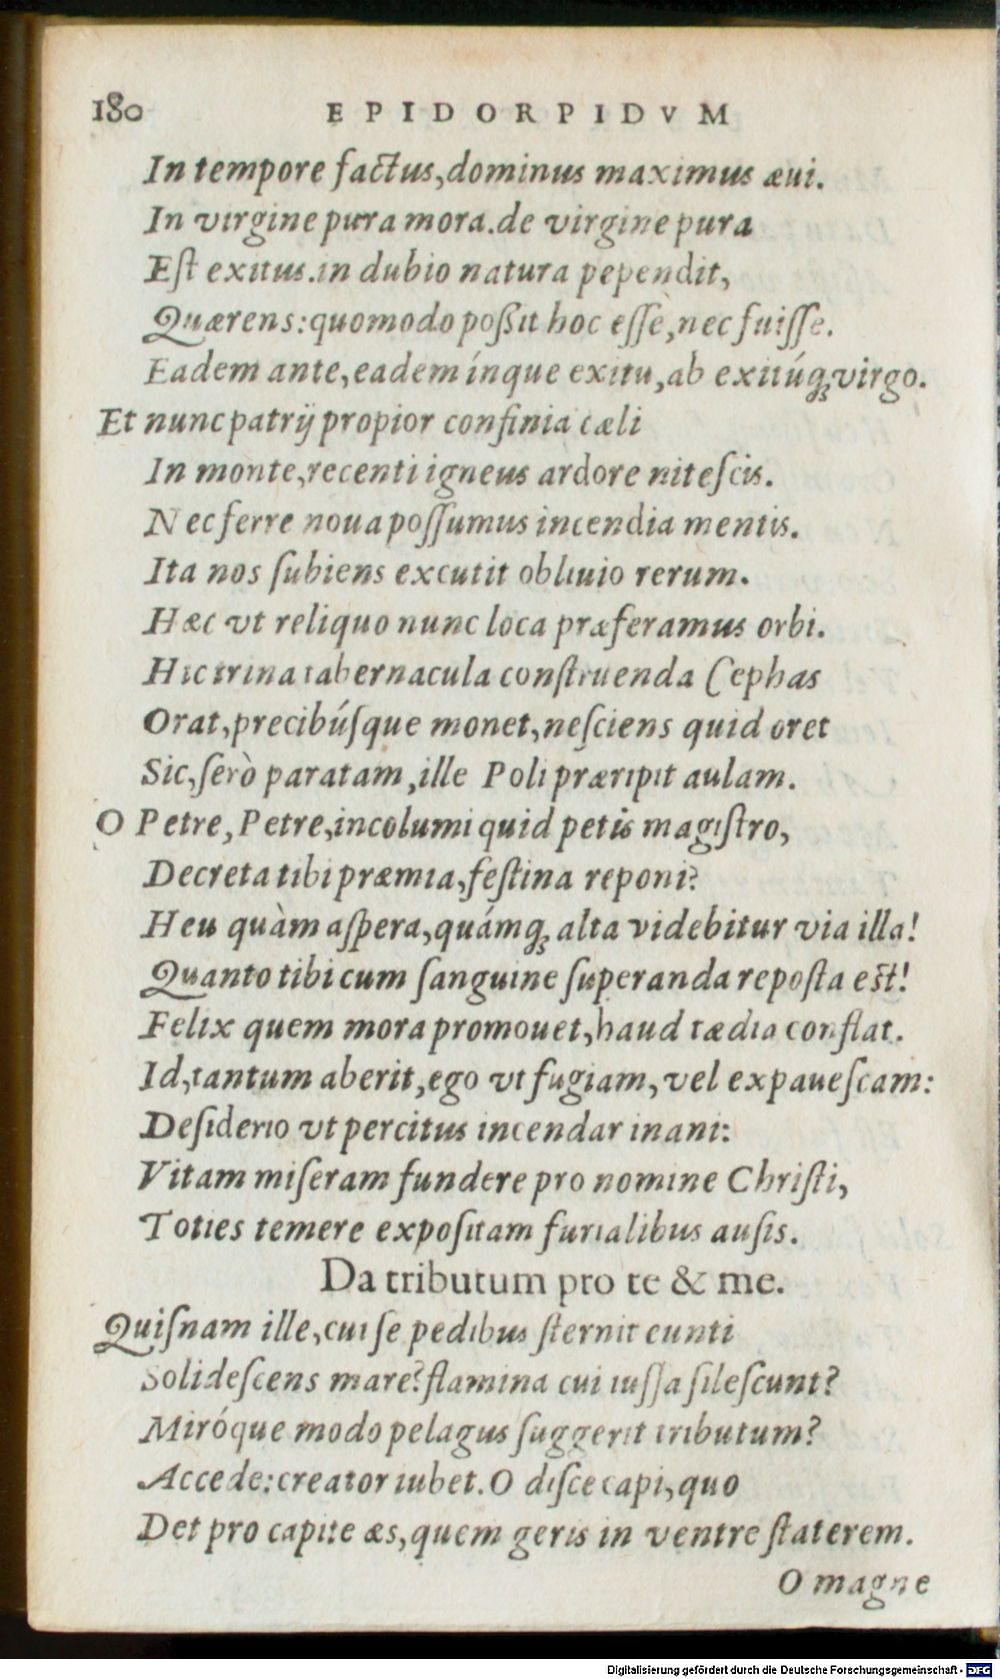 180 EPIDORPIDVM
In tempore factus, dominus maximus æui.
In virgine pura mora. de virgine pura
Eſt exitus. in dubio natura pependit,
Quærens: quomodo poßit hoc eſſe, nec fuiſſe.
Eadem ante, eadem ínque exitu, ab exitúq; virgo.
Et nunc patrij propior confinia cæli
In monte, recenti igneus ardore niteſcis.
Nec ferre noua poſſumus incendia mentis.
Ita nos ſubiens excutit obliuio rerum.
Hæc vt reliquo nunc loca præferamus orbi.
Hic trina tabernacula conſtruenda Cephas
Orat, precibúſque monet, neſciens quid oret
Sic, ſerò paratam, ille Poli præripit aulam.
O Petre, Petre, incolumi quid petis magiſtro,
Decreta tibi præmia, feſtina reponi?
Heu quàm aſpera, quámq; alta videbitur via illa!
Quanto tibi cum ſanguine ſuperanda repoſta eſt!
Felix quem mora promouet, haud tædia conflat.
Id, tantum aberit, ego vt fugiam, vel expaueſcam:
Deſiderio vt percitus incendar inani:
Vitam miſeram fundere pro nomine Chriſti,
Toties temere expoſitam furialibus auſis.
Da tributum pro te & me.
Quiſnam ille, cui ſe pedibus ſternit eunti
Solideſcens mare? flamina cui iuſſa ſileſcunt?
Miróque modo pelagus ſuggerit tributum?
Accede: creator iubet. O diſce capi, quo
Det pro capite æs, quem geris in ventre ſtaterem.
O magne
Digitalisierung gefördert durch die Deutsche Forschungsgemeinschaft - DFG